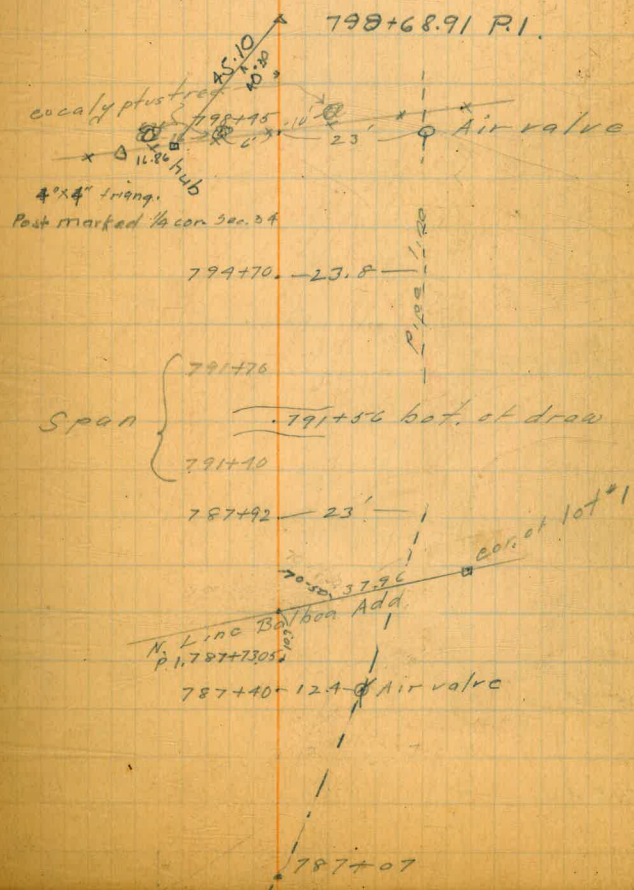 798+68.91 P.I.
45.10
40°30'
eucalyptus tree
798+45
10'
6'
23'
Air valve
16.86
hub
4"x4" triang.
Post marked 1/4 cor. Sec. 34
794+70
23.8
Pipe line
791+76
Span
791+56 bot. of draw
791+40
787+92
23'
cor. of lot #1
70-50
37.96
N. Line Balboa Add.
P.I. 787+73.05
787+40
12.4
Air valve
787+07